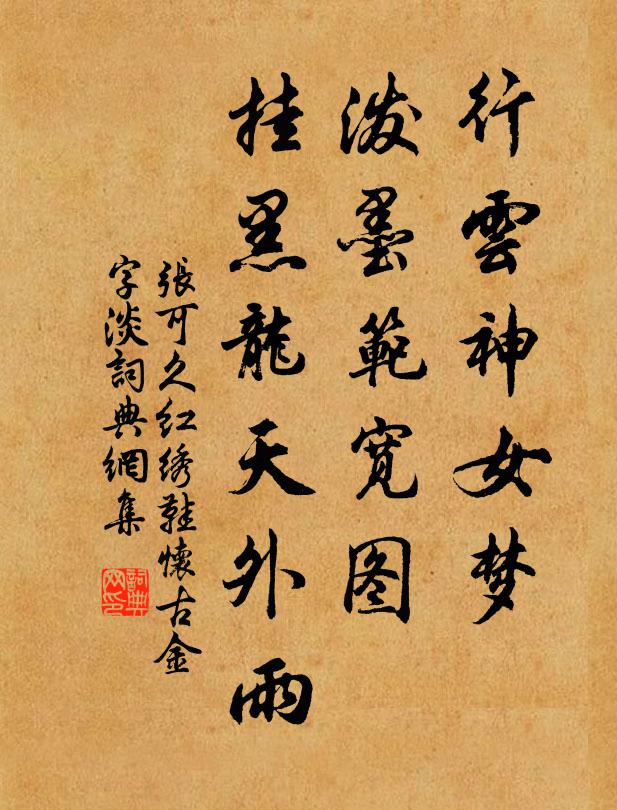 行雲神女梦
泼墨範宽图
挂黑龍天外雨
張可久红绣鞋懷古金
字淡詞典網集
詞典网印